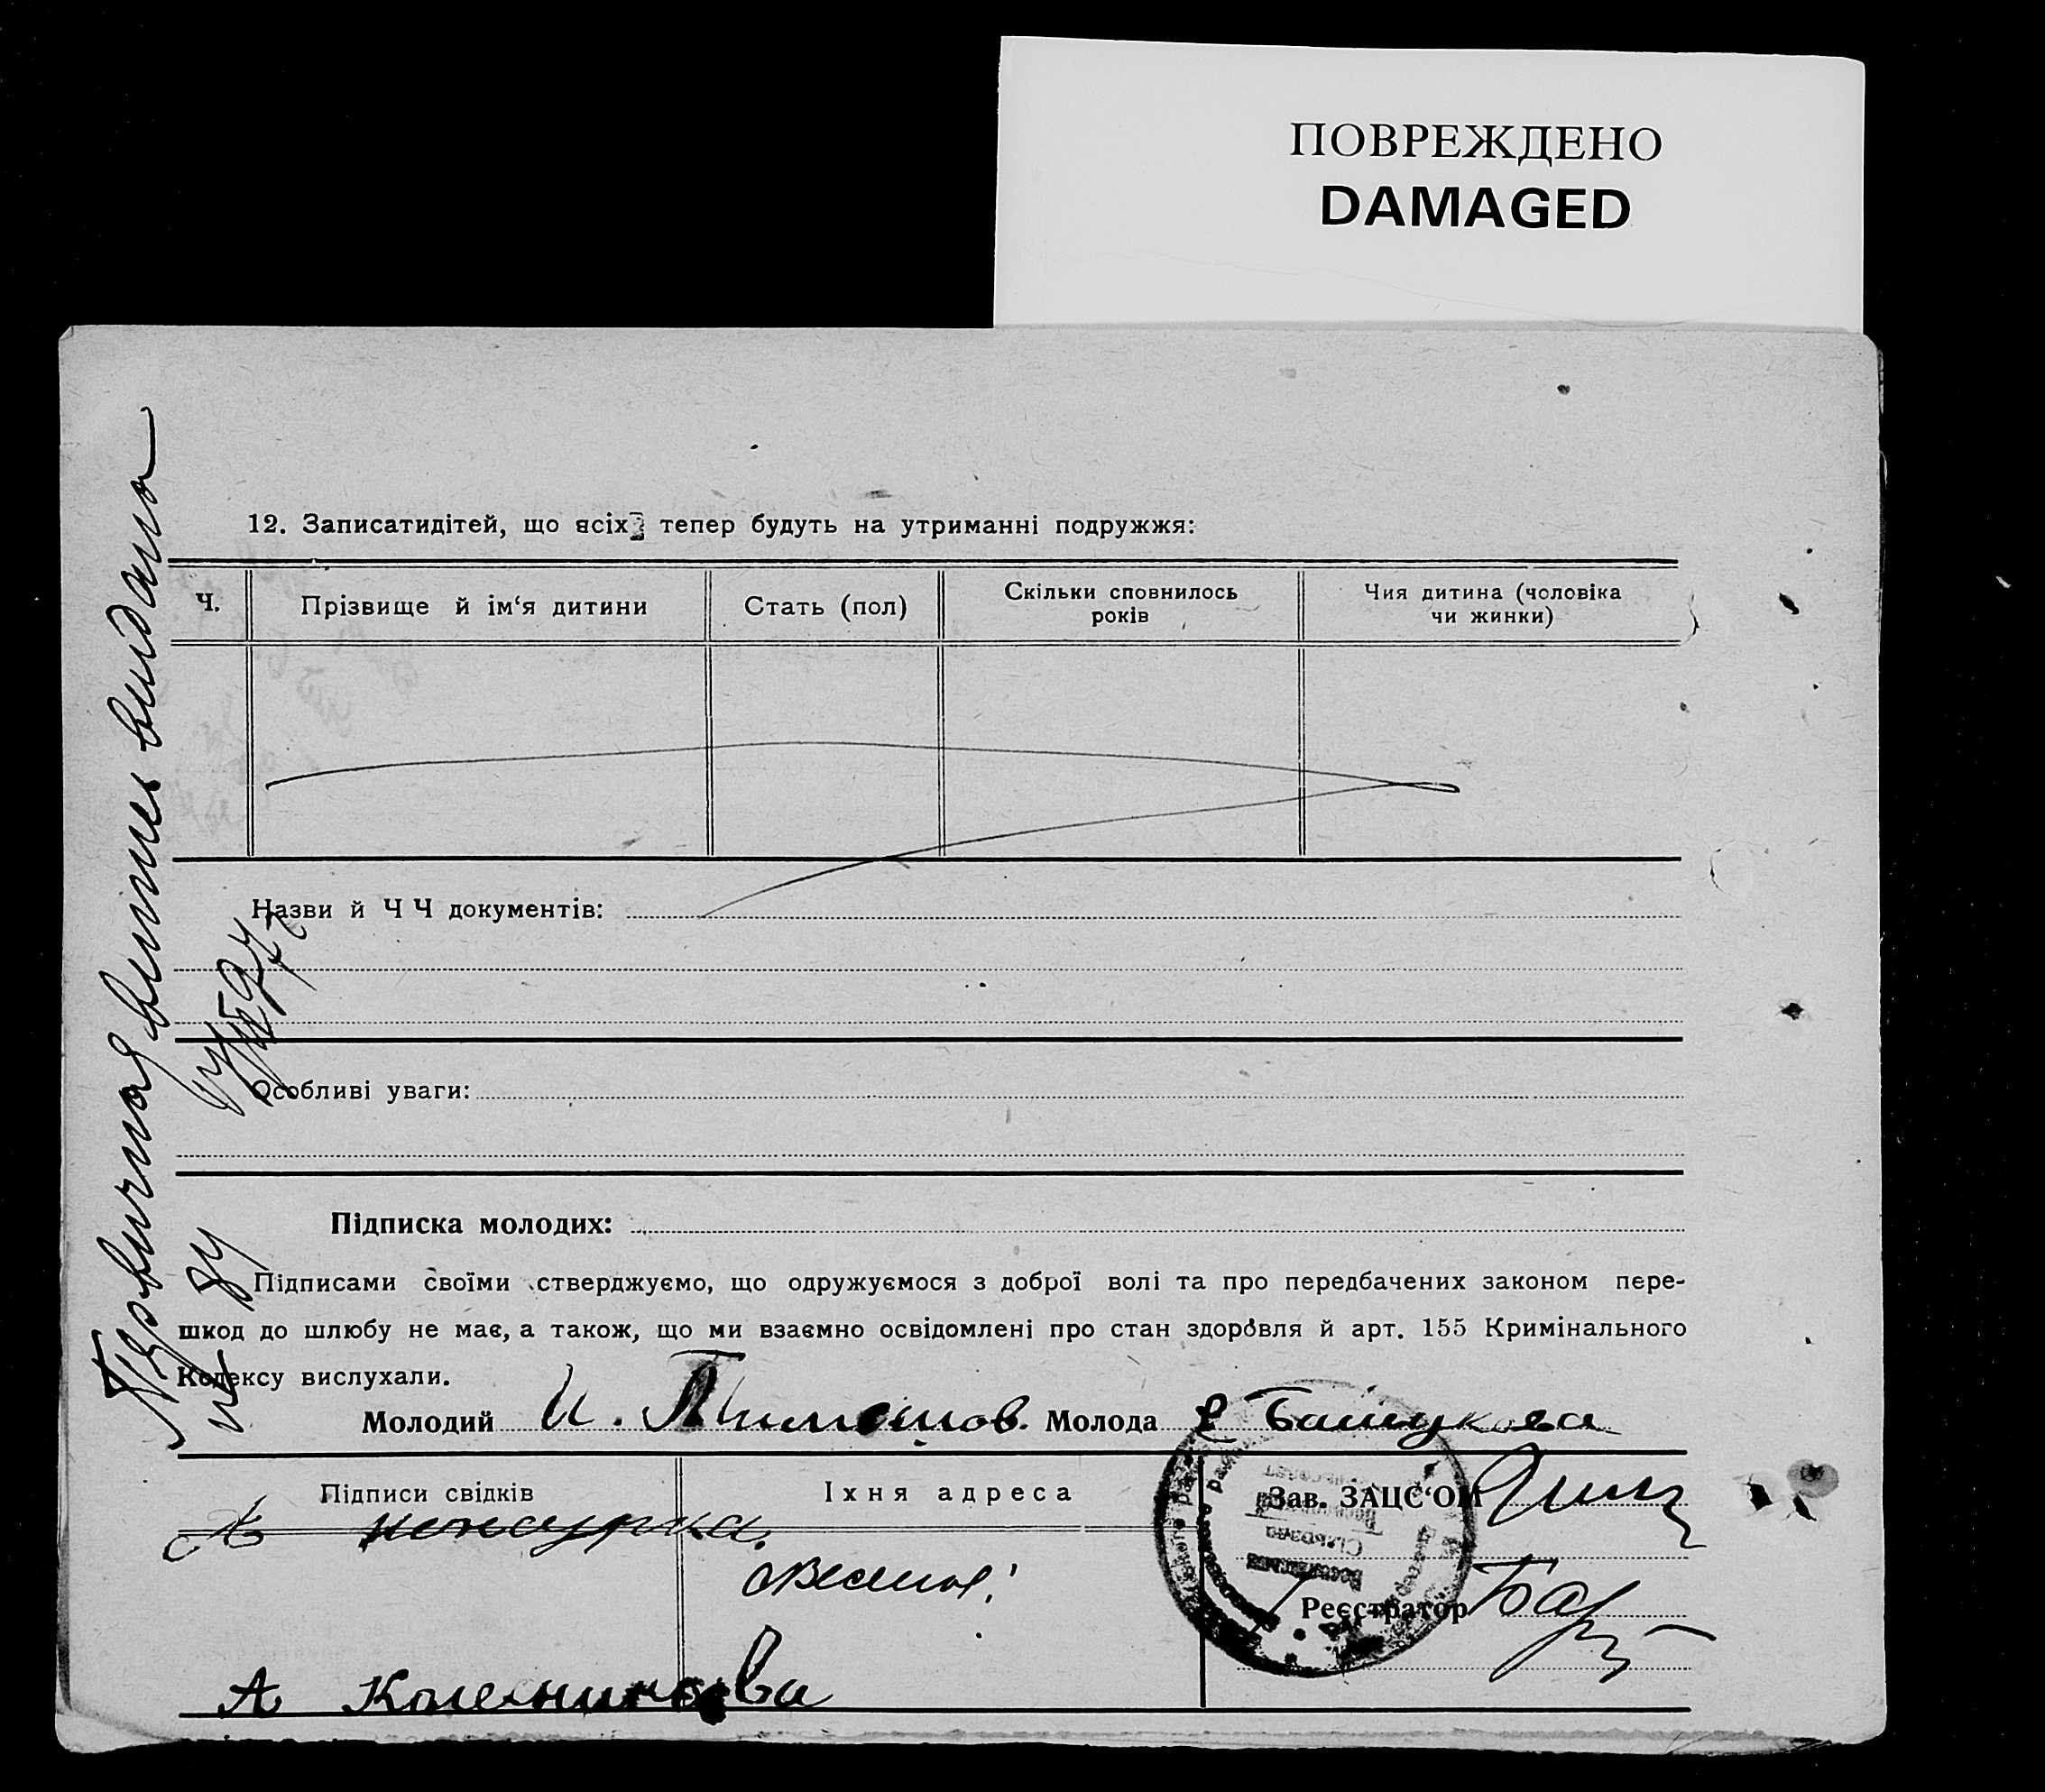 ПОВРЕЖДЕНО
DAMAGED
12. Записатидітей, що всіх тепер будуть на утриманні подружжя:
Ч.
Прізвище й ім‘я дитини
Стать (пол)
Скільки сповнилось
років
Чия дитина (чоловіка
чи жинки)
Назви й Ч Ч документів:
Особливі уваги:
Підписка молодих:
Підписами своїми стверджуємо, що одружуємося з доброї волі та про передбачених законом пере-
шкод до шлюбу не має, а також, що ми взаємно освідомлені про стан здоровля й арт. 155 Кримінального
Кодексу вислухали.
Молодий И. Тимошов. Молода Е Башукова
Підписи свідків
Їхня адреса
Зав. ЗАЦС‘ОМ
Реєстратор
А Колесникова
випись видано